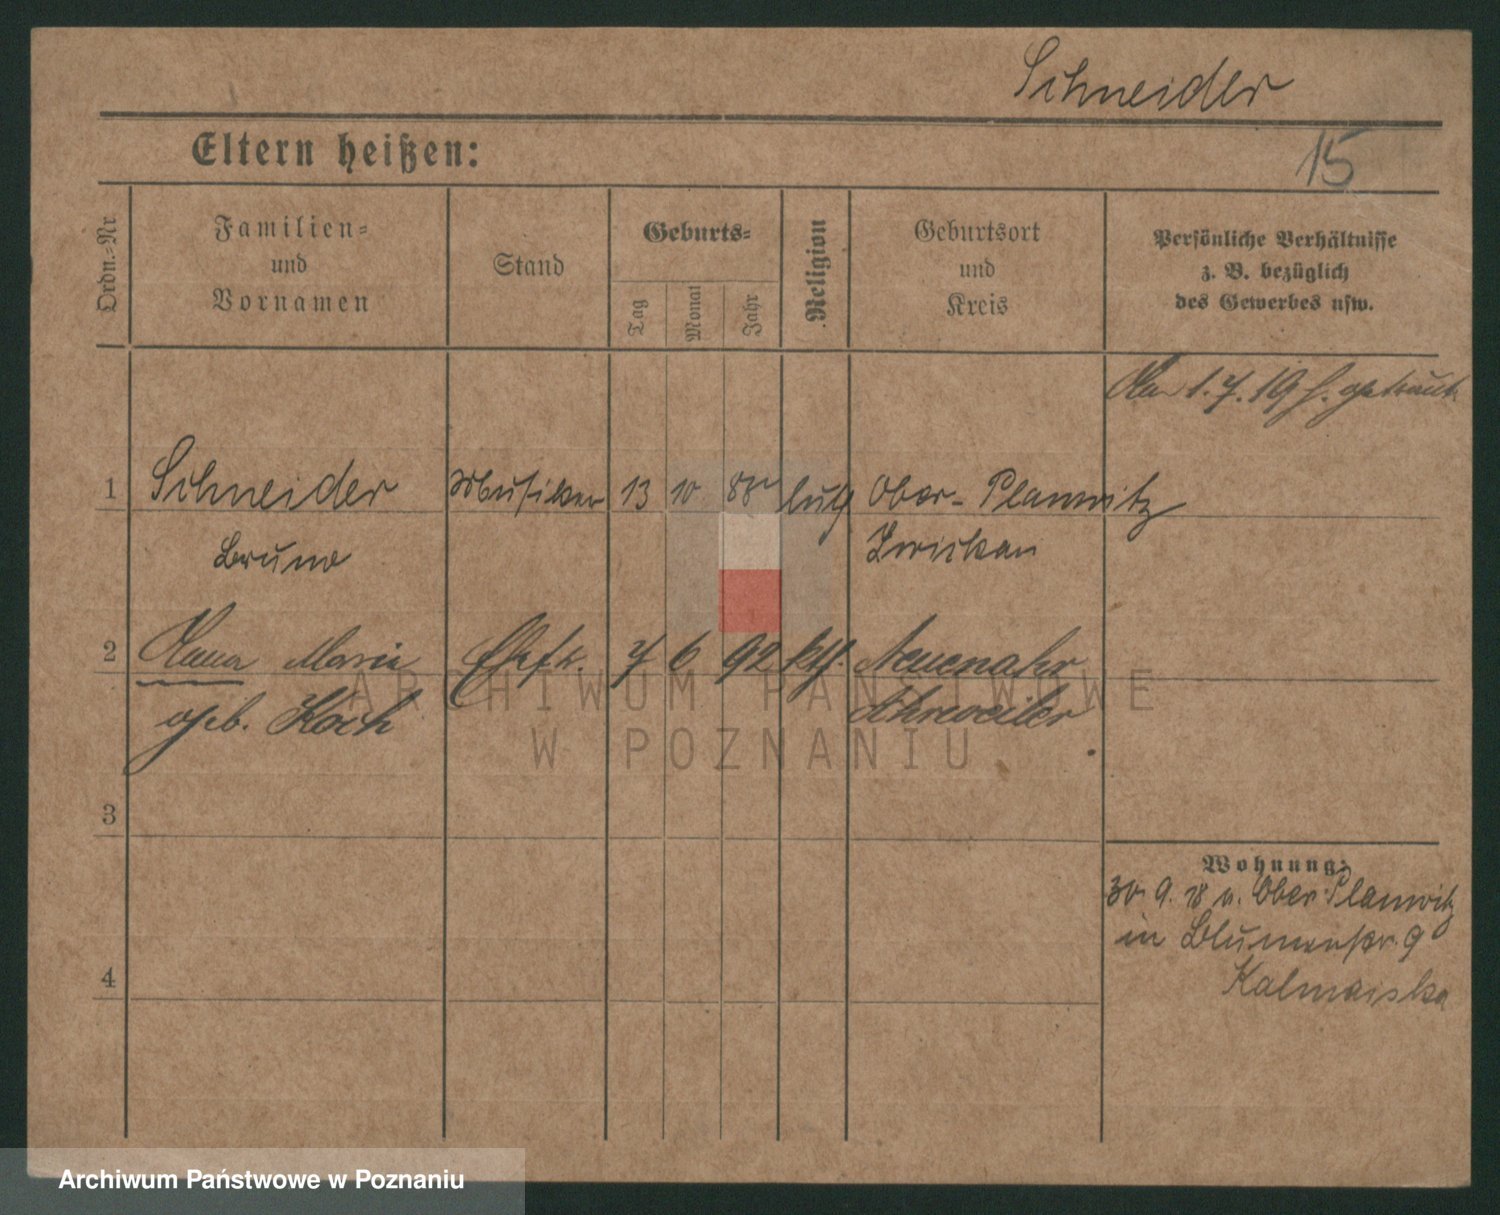 Schneider
Eltern heißen:
15
Ordn.=Nr
Familien=
und
Vornamen
Stand
Geburts=
Tag
Monat
Jahr
Religion
Geburtsort
und
Kreis
Persönliche Verhältnisse
z. B. bezüglich
des Gewerbes usw.
1.7.19 h. getraut
1 Schneider Musiker 13 10 88 luth Ober-Planwitz
Bruno Zwickau
2 Anna Marie Ehefr. 7 6 92 kth. Neuenahr
geb. Koch Ahrweiler
3
Wohnung:
30. 9. 18 v. Ober Planwitz
in Blumenstr. 9
4
Kalwaiska
ARCHIWUM PAŃSTWOWE
W POZNANIU
Archiwum Państwowe w Poznaniu